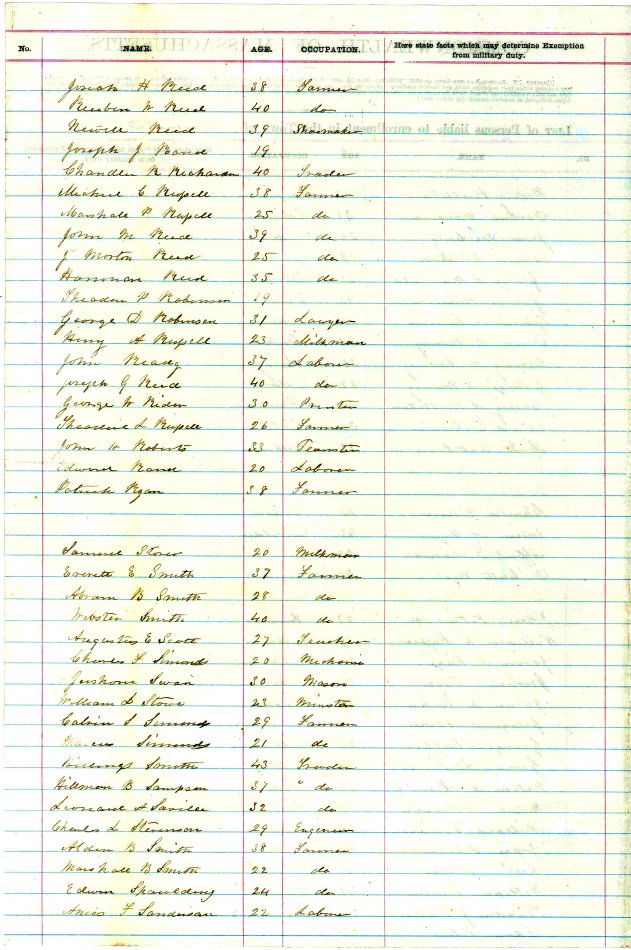 No. NAME. AGE. OCCUPATION. Here state facts which may determine Exemption
from military duty.
Josiah H Reed 38 Farmer
Reuben W Reed 40 do
Newell Reed 39 Shoemaker
Joseph J Rand 19
Chandler R Richardson 40 Trader
Michael C Russell 38 Farmer
Marshall P Russell 25 do
John M Reed 39 do
J Morton Reed 25 do
Hammon Reed 35 do
Theadore P Robinson 19
George D Robinson 31 Lawyer
Henry A Russell 23 Milkman
John Ready 37 Laborer
Joseph G Reed 40 do
George W Rider 30 Printer
Theadore L Russell 26 Farmer
John H Roberts 33 Teamster
Edward Rand 20 Laborer
Patrick Ryan 38 Farmer
Samuel Storer 20 Milkman
Everett E Smith 37 Farmer
Abram B Smith 28 do
Webster Smith 40 do
Augustus E Scott 27 Teacher
Charles F Simonds 20 Mechanic
Gershom Swan 30 Mason
William L Stowe 23 Minster
Calvin S Simond 29 Farmer
Simonds 21 do
Billings Smith 43 Trader
Hillman B Sampson 37 " do
Leonard A Saville 32 do
Charles L Stevenson 29 Engineer
Alden B Smith 38 Farmer
Marshall B Smith 22 do
Edwin Spaulding 24 do
Amos F Sanderson 22 Laborer